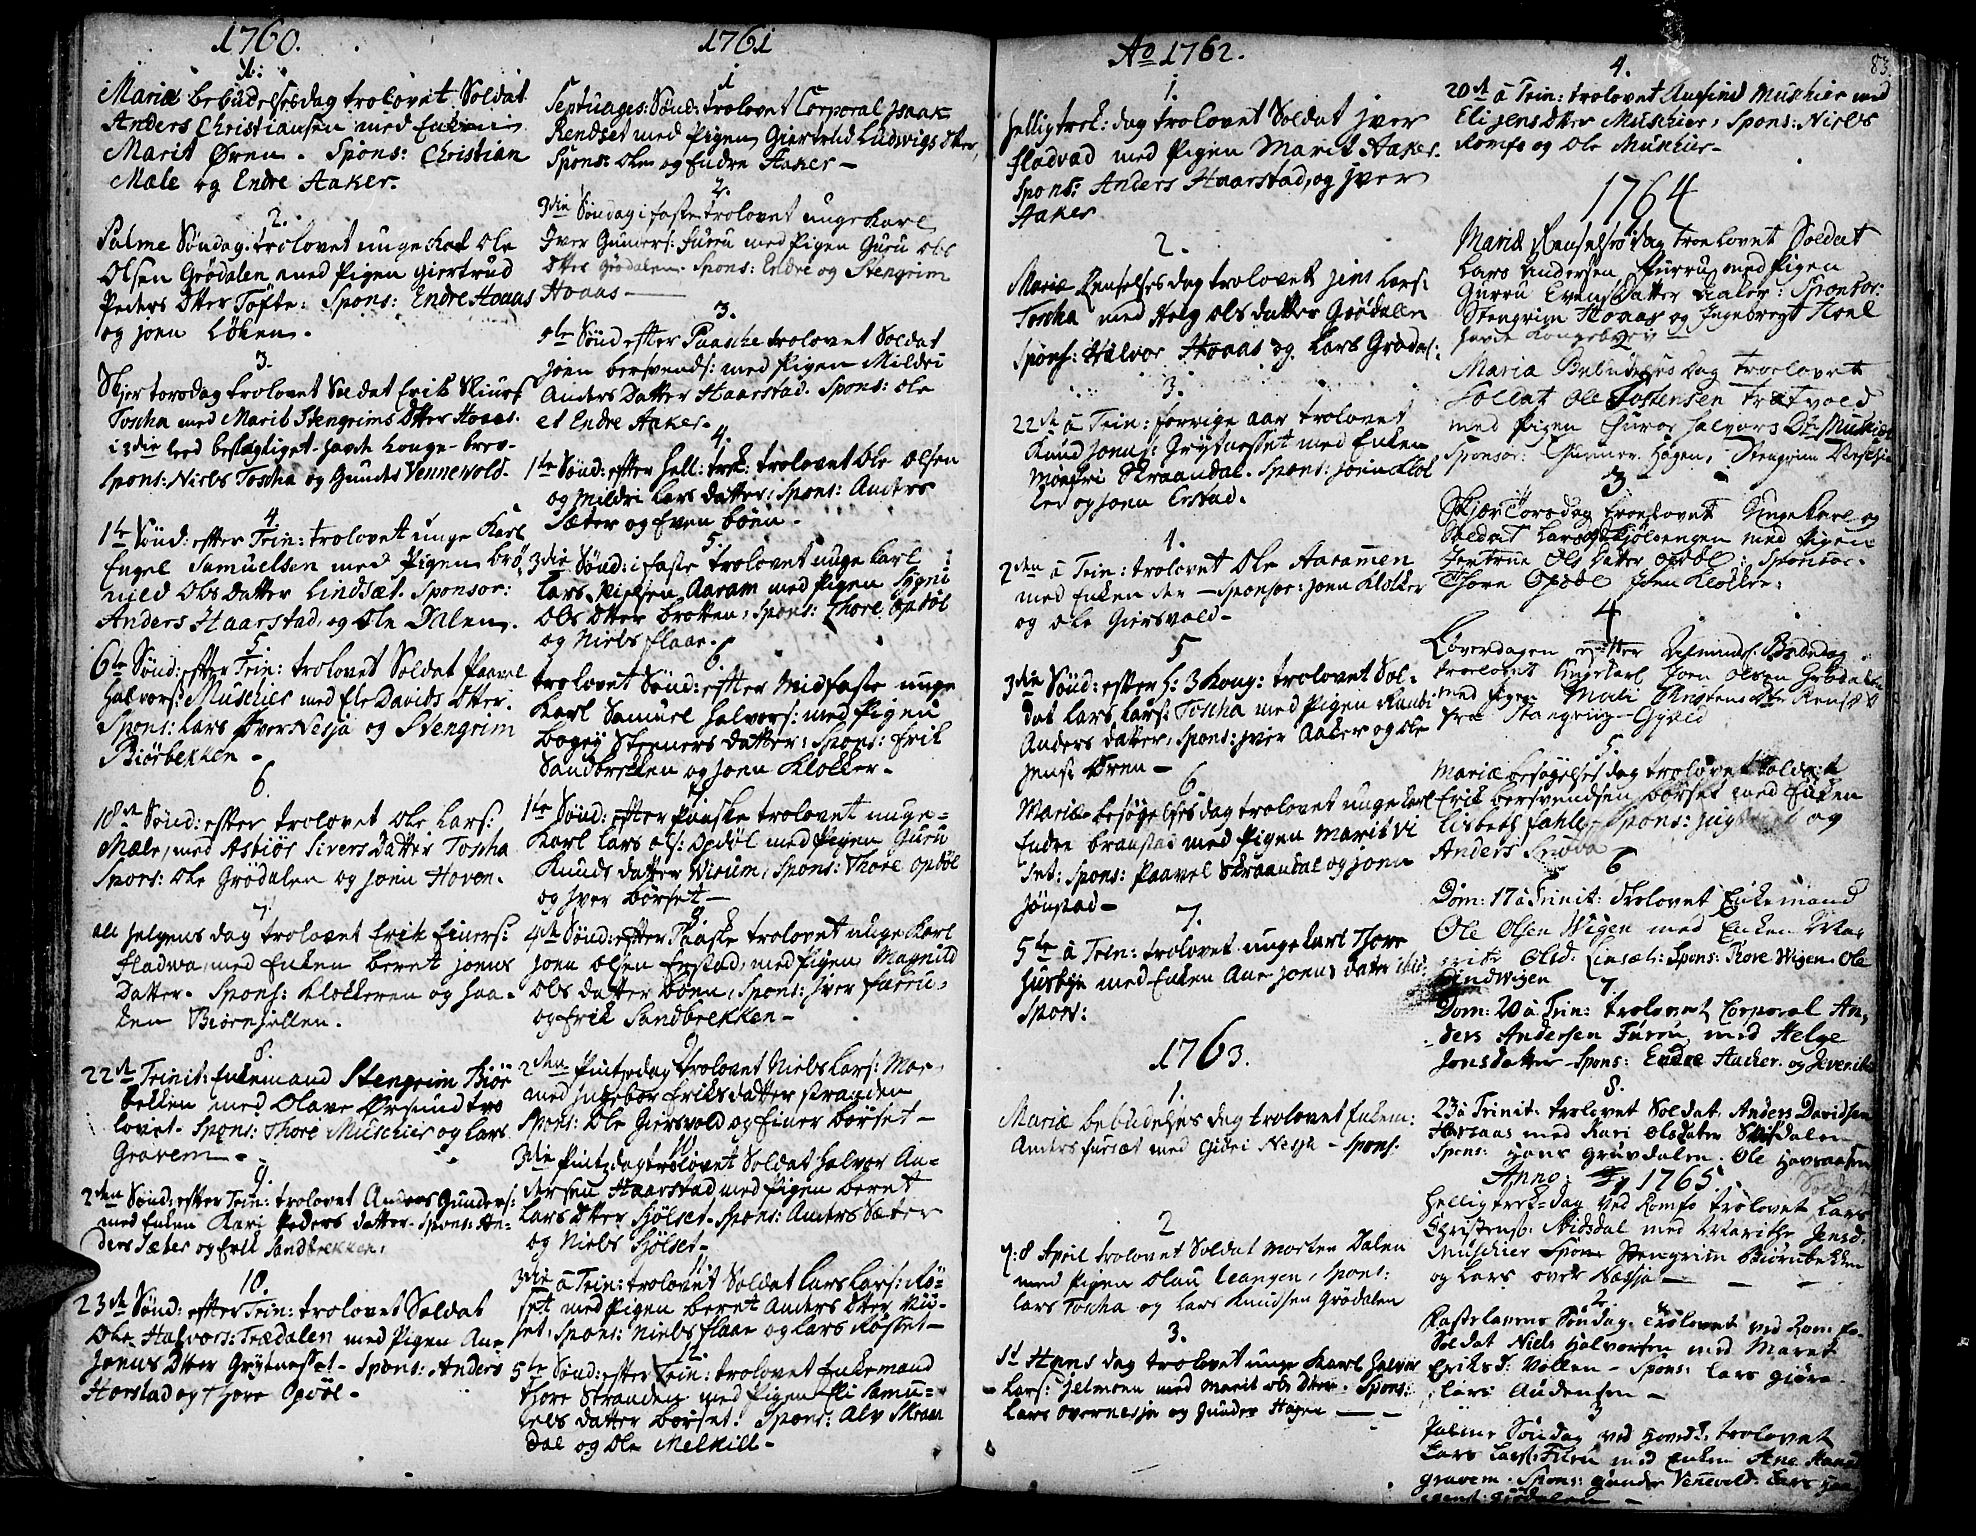 1760.
1.
Mariæ bebudelsesdag trolovet Soldat
Anders Christiansen med Enken
Marit Øren. Spons: Christian
Male og Endre Aaker.
2.
Palme Søndag trolovet unge Karl Ole
Olsen Grødalen med Pigen Giertrud
Peders Dtter Tofte: Spons: Endre Hoaas
og Joen Løken.
3.
Skjer torsdag trolovet Soldat Erik
Toscha med Marit Stengrims Dtter Hoaas
i 3die leed beslægtiget. havde konge-brev.
Spons: Niels Toscha og Gunder Vennevold.
4.
1te Sønd: efter Trin: trolovet unge Karl
Engel Samuelsen med Pigen Brø-
nild Olsdatter Lindsæt. Sponsor:
Anders Haarstad, og Ole Dalen.
5.
6te Sønd: efter Trin: trolovet Soldat Paavel
Halvors: Muschier med Ele Davids Dtter.
Spons: Lars Over Nesja og Stengrim
Biørbekken -
6.
18de Sønd: efter trolovet Ole Lars:
Mæle, med Asbiør Sivers Datter Toscha
Spons: Ole Grødalen og Joen Hoven.
7
all helgens dag trolovet Erik Einers:
Fladwa, med Enken Beret Joens
Datter. Spons: Klokkeren og Haa-
ken Biørnhellen.
8.
22de Trinit: Enkemand Stengrim Biør
bekken med Olave Ørsund tro
lovet. Spons: Thore Muschier og Lars
Gravem -
9.
2den Sønd: efter Trin: trolovet Anders Gunders:
med Enken Kari Peders datter. Spons: An-
ders Sæter og Erik Sandbrekken.
10.
23de Sønd: efter Trin: trolovet Soldat
Ole Halvors: Trædalen med Pigen Ane
Joens Dtter Grytnesset - Spons: Anders
Horstad og Thore Opdøl -
1761
1
Septuages: Sønd: trolovet Corporal Isaak
Rendset med Pigen Giertrud Ludwigs Dtter,
Spons: Ole og Endre Aaker -
2.
3die Søndag i faste trolovet unge Karl
Iver Gunders: Furru med Pigen Guru Ols
Dtter Grødalen. Spons: Endre og Stengrim
Hoaas -
3.
Sønd efter Paaske trolovet Soldat
Joen Bersvends: med Pigen Mildri
Anders Datter Haarstad. Spons: Ole
et Endre Aaker.
4.
1te Sønd: efter Hell: trek: trolovet Ole Olsen
og Mildri Lars datter, Spons: Anders
Sæter og Even Boen -
5.
3die Sønd: i faste trolovet unge Karl
Lars Nielsen Aaram med Pigen Sygni
Ols Dtter Brotten, Spons: Thore Opdøl
og Niels Flaae.
6
trolovet Sønd: efter Midfaste unge
Karl Samuel Halvors: med Pigen
Steners datter, Spons: Erik
Sandbrekken og Joen Klokker -
7
1te Sønd: efter Paaske trolovet unge-
Karl Lars Ols: Opdøl med Pigen Guru
Knuds datter Wirum, Spons: Thore Opdøl
og Iver Børset -
8.
4de Sønd: efter Paaske trolovet unge Karl
Joen Olsen Erstad, med Pigen Magnild
Ols datter Boen, Spons: Iver Furru,
og Erik Sandbrekken -
9
2den Pintzdag trolovet Niels Lars: Mor
med Ingebor Eriks datter Stranden
Spons: Ole Giersvold og Einer Børset -
10
3die Pintzdag trolovet Soldat Halvor An-
dersen Haarstad med Pigen Beret
Lars Dtter Hjølset. Spons: Anders Sæter
og Niels Hjølset -
3die a Trin: trolovet Soldat Lars Lars: Rø-
set med Pigen Beret Anders Dtter
set, Spons: Niels Flaae og Lars Røset -
12
5te Sønd: efter Trin: trolovet Enkemand
Thore Stranden med Pigen Eli Samu-
els datter Børset: Spons: Alv Skraa
Dal og Ole Melkild -
Ao 1762.
1.
Hellig trek: dag trolovet Soldat Iver
Fladvad med Pigen Marit Aaker.
Spons: Anders Haarstad, og Iver
Aaker
2.
Mariæ Renselses dag trolovet Jens Lars:
Toscha med Helg Olsdatter Grødalen
Spons: Halvor Hoaas og Lars Grødal:
3.
22de a Trin: forrige aar trolovet
Knud Jons: Grytnesset med Enken
Skraandal. Spons: Joen Klok
ker og Joen Erstad.
4.
2den a Trin: trolovet Ole Aaramen
med Enken der - Sponsor: Joen Klokker
og Ole Giersvold -
5
3die Sønd: efter H: 3 Kong: trolovet Sol-
dat Lars Lars: Toscha med Pigen Randi
Anders datter, Spons: Iver Aaker og Ole
Jens: Øren -
6
Mariæ besøgelses dag trolovet unge Karl
Endre Branstad med Pigen Marit Vi
set: Spons: Paavel Skraandal og Joen
Jønstad -
7.
5te a Trin: trolovet unge Karl Thore
Husbye med Enken Ane Joens datter ibid:
Spons:
1763.
1.
Mariæ bebudelses dag trolovet Enkem:
Anders Furset med Nesja - Spons:
2
7:8 April trolovet Soldat Morten Dalen
med Pigen Olau Leangen, Spons:
Lars Toscha og Lars Knudsen Grødalen
3.
St Hans dag trolovet unge Karl Halvor
Lars: Hjelmoen med Marit Ols Dtter. Spons:
Lars Overnesja og Gunder Hagen -
83.
4.
20de a Trin: trolovet Aufind Muschier med
Eli Jens Dtter Muschier, Spons: Niels
Romfo og Ole Muschier -
1764
Mariæ Renselses dag troelovet Soldat
Lars Andersen Furru, med Pigen
Gurru Evens Datter Aaker: Sponsor:
Stengrim Hoaas og Ingebrigt Hoel
havde Kongebrev -
2
Mariæ Bebudelses Dag troelovet
Soldat Ole Tostensen Trætvold
med Pigen Guroe Halvors Dtr Muschier
Sponsor: Gunner Hagen, Stengrim
3
Skjær Torsdag troelovet Ungekarl og
Soldat Lars Hjølsengen med Pigen
Jentrue Ols Datter Opdøl: Sponsor.
Thore Opdøl Joen Klokker:
4
Løverdagen efter Almind: Bededag
troelovet Ungekarl Joen Olsen Grødalen
med Pigen Mali Dtter Rensæt
fra Stangvig-Gjæld
5
Mariæ besøgelses dag trolovet Soldat
Erik Bersvendsen Børset med Enken
Lisbeth Fahle, Spons: og
Anders Snøva
6
Dom: 17 a Trinit: trolovet Enkemand
Ole Olsen Wigen med Enken Mar
rite Olsd: Linsæt: Spons: Thore Wigen. Ole
Lindwigen
7.
Dom: 20 a Trin: trolovet Corporal An-
ders Andersen Furru med Helge
Jonsdatter - Spons: Endre Aacker. og
8.
23 a Trinit. trolovet Soldat Anders Davidsen
Hafsaas med Kari Olsdater
Spons: Hans Gruvdalen. Ole Havsaasen
Anno: 1765.
Helligtrek: dag ved Romfo trolovet Lars
Christens: Nisdal med Marithe Jensd:
Muschier Spons Stengrim Biørnbekken
og Lars over Næssja -
2.
Fastelavens Søndag trolovet ved Romfo
Soldat Niels Halvorsen med Maret
Eriksd: Vollen - Spons: Lars
Lars Audensen -
3
Palme Søndag ved Hoved: trolovet
Lars Lars: Furu med Enken Ane
Gravem. Spons: Gunder Venevold. Lars